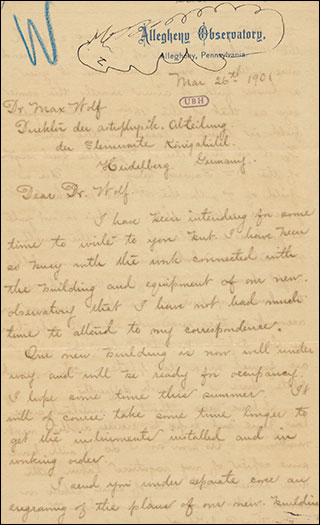 W
Allegheny Observatory,
Allegheny, Pennsylvania
Mar 26th 1901
UBH
Dr. Max Wolf
Direktor der astrophysik. Abteilung
der
Heidelberg Germany.
Dear Dr. Wolf.
I have been intending for some
time to write to you but I have been
so busy with the work connected with
the building and equipment of our new
observatory that I have not had much
time to attend to my correspondence.
Our new building is now well under
way and will be ready for occupancy
I hope some time this summer. It
will of course take some time longer to
get the instruments installed and in
working order.
I send you under separate cover an
engraving of the plans of our new building